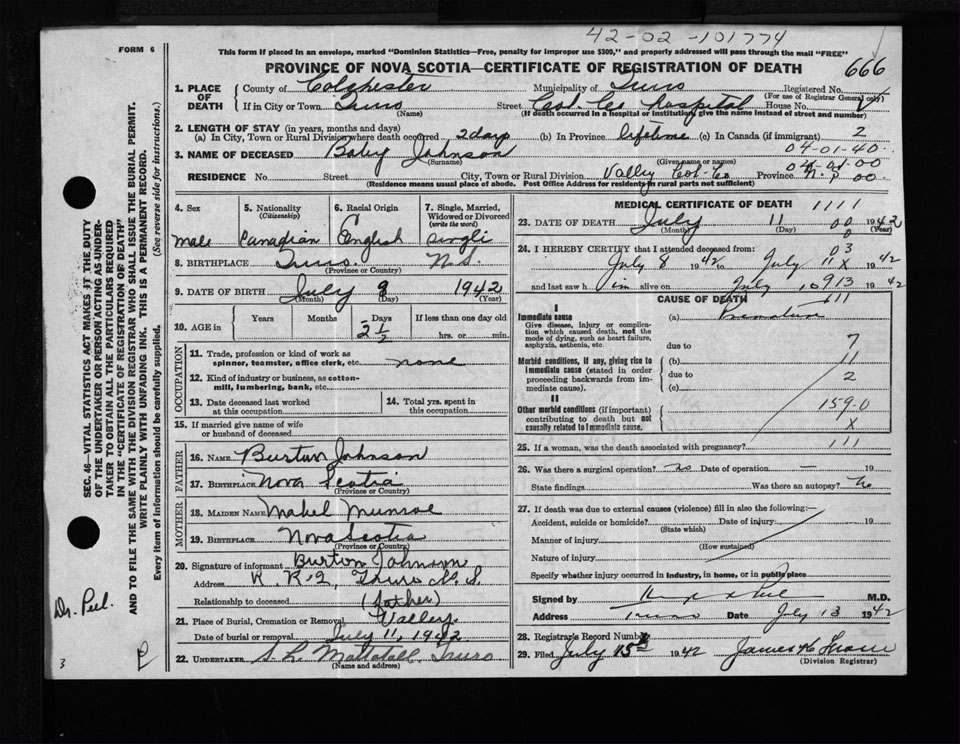 42-02-101774
FORM 6
This form if placed in an envelope, marked "Dominion Statistics—Free, penalty for improper use $300," and properly addressed will pass through the mail "FREE"
PROVINCE OF NOVA SCOTIA—CERTIFICATE OF REGISTRATION OF DEATH 666
1. PLACE OF DEATH County of Colchester Municipality of Truro Registered No.
(For use of Registrar General only)
If in City or Town Truro Street Col. Co Hospital House No.
(Name) (If death occurred in a hospital or institution, give the name instead of street and number)
2. LENGTH OF STAY (in years, months and days)
(a) In City, Town or Rural Division where death occurred 2 days (b) In Province lifetime (c) In Canada (if immigrant) 2
04-01-40
3. NAME OF DECEASED Baby Johnson
(Surname) (Given name or names) 04-01-00
RESIDENCE No. Street City, Town or Rural Division Valley Col-Co Province N.S 00
(Residence means usual place of abode. Post Office Address for residents in rural parts not sufficient)
4. Sex 5. Nationality (Citizenship) 6. Racial Origin 7. Single, Married, Widowed or Divorced (write the word)
male Canadian English Singli
8. BIRTHPLACE Truro N.S.
(Province or Country)
9. DATE OF BIRTH July 8 1942
(Month) (Day) (Year)
10. AGE in Years Months Days If less than one day old
2 1/2 hrs. or min.
OCCUPATION
11. Trade, profession or kind of work as spinner, teamster, office clerk, etc. none
12. Kind of industry or business, as cotton-mill, lumbering, bank, etc.
13. Date deceased last worked at this occupation 14. Total yrs. spent in this occupation
15. If married give name of wife or husband of deceased
FATHER
16. Name Burton Johnson
17. Birthplace Nova Scotia
(Province or Country)
MOTHER
18. MAIDEN NAME Mabel Munroe
19. BIRTHPLACE Nova Scotia
(Province or Country)
20. Signature of informant Burton Johnson
Address R. R. 2, Truro N. S.
Relationship to deceased (father)
21. Place of Burial, Cremation or Removal Valley
Date of burial or removal July 11, 1942
22. UNDERTAKER S. L. Mattatall, Truro
(Name and address)
MEDICAL CERTIFICATE OF DEATH 1111
23. DATE OF DEATH July 11 00 1942
(Month) (Day) (Year)
0
24. I HEREBY CERTIFY that I attended deceased from: 03
July 8 1942 to July 11 X 1942
and last saw him alive on July 10 913 1942
CAUSE OF DEATH 111
I
Immediate cause (a)
Give disease, injury or complication which caused death, not the mode of dying, such as heart failure, asphyxia, asthenia, etc.
due to 7
Morbid conditions, if any, giving rise to immediate cause (stated in order proceeding backwards from immediate cause). (b) 1
due to 2
(c)
II
159-0
Other morbid conditions (if important) contributing to death but not causally related to immediate cause. X
25. If a woman, was the death associated with pregnancy? 111
26. Was there a surgical operation? no Date of operation — 19
State findings Was there an autopsy? No
27. If death was due to external causes (violence) fill in also the following:—
Accident, suicide or homicide? Date of injury 19
(State which)
Manner of injury
(How sustained)
Nature of injury
Specify whether injury occurred in industry, in home, or in public place
Signed by M.D.
Address Truro Date July 13 1942
28. Registrar's Record Number
29. Filed July 13 1942
(Division Registrar)
SEC. 46—VITAL STATISTICS ACT MAKES IT THE DUTY OF THE UNDERTAKER OR PERSON ACTING AS UNDERTAKER TO OBTAIN ALL THE PARTICULARS REQUIRED IN THE "CERTIFICATE OF REGISTRATION OF DEATH" AND TO FILE THE SAME WITH THE DIVISION REGISTRAR WHO SHALL ISSUE THE BURIAL PERMIT.
WRITE PLAINLY WITH UNFADING INK. THIS IS A PERMANENT RECORD.
Every item of information should be carefully supplied. (See reverse side for instructions.)
Dr. Peel.
3